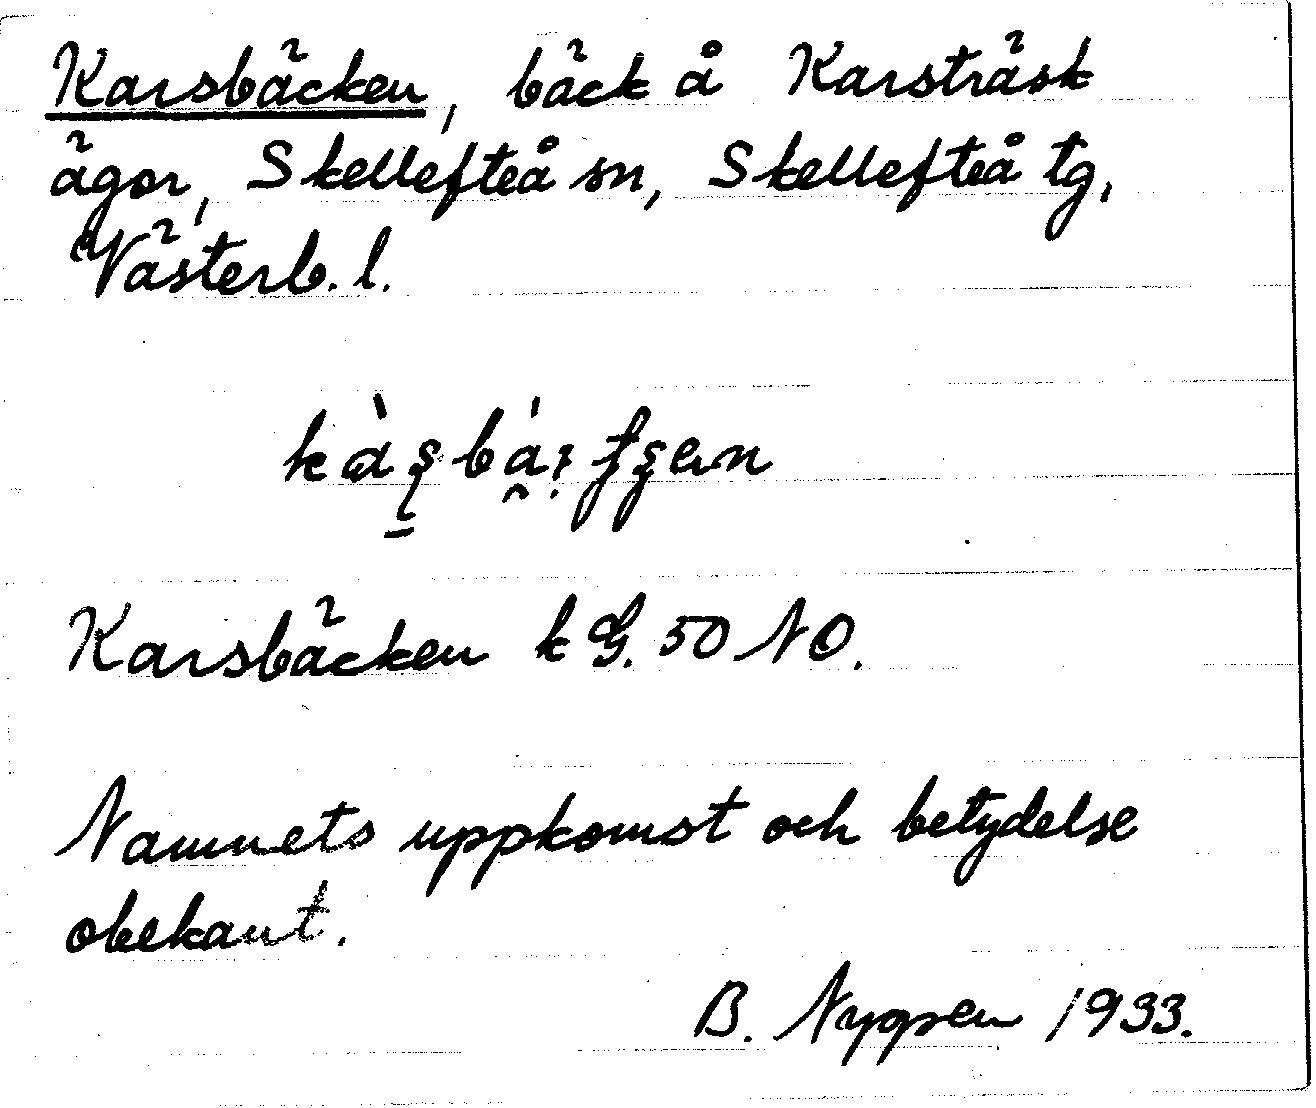 Karsbäcken, bäck å Karsträsk
ägor, Skellefteå sn, Skellefteå tg,
Västerb. l.
Karsbäcken kG. 50 NO.
Namnets uppkomst och betydelse
obekant.
B. Nygren 1933.